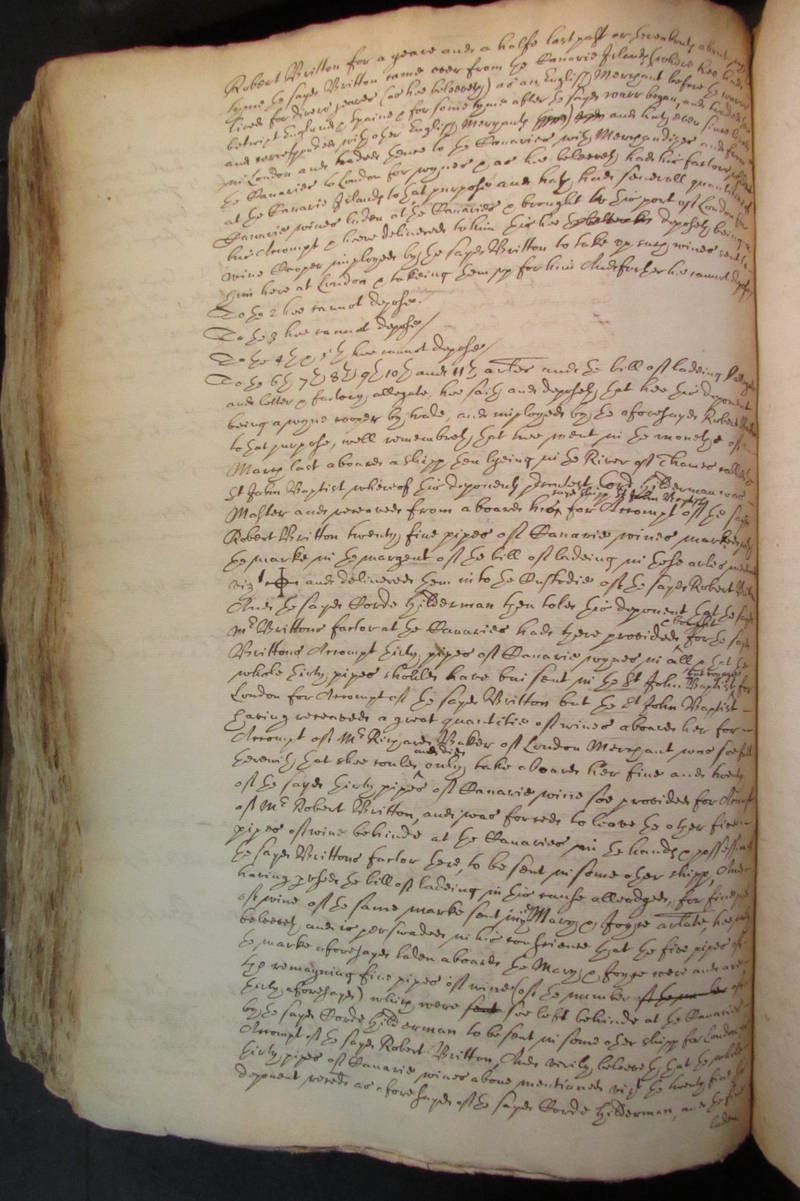 Robert Britton for a yeare and a halfe last past or thereabouts about
tyme the sayd Britton came over from the Canarie Islands (where hee had
lived for divers yeares (as hee beleeveth) as an English Merchant before the warre
betwixt England & Spaine & for some tyme after the sayd warr began, and
and corresponded with other English Merchants and hath ever since lived
in London and traded thence to the Canaries with Merchandizes and from
the Canaries to London for wynes & as hee beleeveth had his factors
at the Canarie Islands to that purpose and hath had severall quantities of
Canarie wines laden at the Canaries & brought to this port of London for
his Accompt & here delivered to him this hee deposeth being a
wine Cooper imployed by the sayd Britton to take up such wines sent to
him here at London & takeing them up for him And further hee cannot depose
To the 2 hee cannot depose.
To the 3 hee cannot depose/
To the 4th & 5th hee cannot depose/
To the 6th 7th 8th 9th 10th and 11th articles and the bill of ladeing
and letter & factory allegate, hee saith and deposeth that hee this deponent
being a wyne cooper by trade, and imployed by the aforesayd Robert Britton
to that purpose, well remembreth that hee went in the moneth of
May last aboard a shipp then lyeing in the River of Thames called the
St John Baptist whereof this deponents Cord Hilderman was
Master and receaved from aboard her sayd shipp St John Baptist for Accompt of the sayd
Robert Britton twenty five pipes of Canarie wines marked with
the marke in the margent of the bill of ladeing in these articles
vizt and delivered them in to the Custodie of the sayd Robert Britton
And the sayd Corde Hilderman then told this deponent that the sayd
Mr Brittons factor at the Canaries had there provided & bought for the sayd
Brittons Accompt thirty pipes of Canarie wynes in all & that the
whole thirty pipes should have bin sent in the St John Baptist for
London for Accompt of the sayd Britton but the St John Baptist
having receaved a great quantitie of wines aboard her for
Accompt of Mr Richard Baker of London Merchant was soe full
therewith that shee could and did only take aboard her five and twenty
of the sayd thirty pipes of Canarie wine soe provided for Accompt
of Mr Robert Britton, and was forced to leave the other five
pipes of wine behinde at the Canaries in the hands & possession of
the sayd Brittons factor there, to be sent in some other shipp, And
having perused the bill of ladeing in this cause alleadged, for five pipes
of wine of the same marke sent in the Mary & Joyce articulate, hee
beleeveth and is perswaded in his conscience that the five pipes of
the marke aforesayd laden aboard the Mary & Joyce were and are
the remayning five pipes of wine (of the number of the number of the
thirty aforesayd) which were sent soe left behinde at the Canaries
by the sayd Corde Hilderman to be sent in some other shipp for London for
Accompt of the sayd Robert Britton, And verily beleeveth that the whole
thirty pipes of Canarie wines above mentioned vizt the twenty five
deponent receaved as aforesayd of the sayd Corde Hilderman, and the five
laden